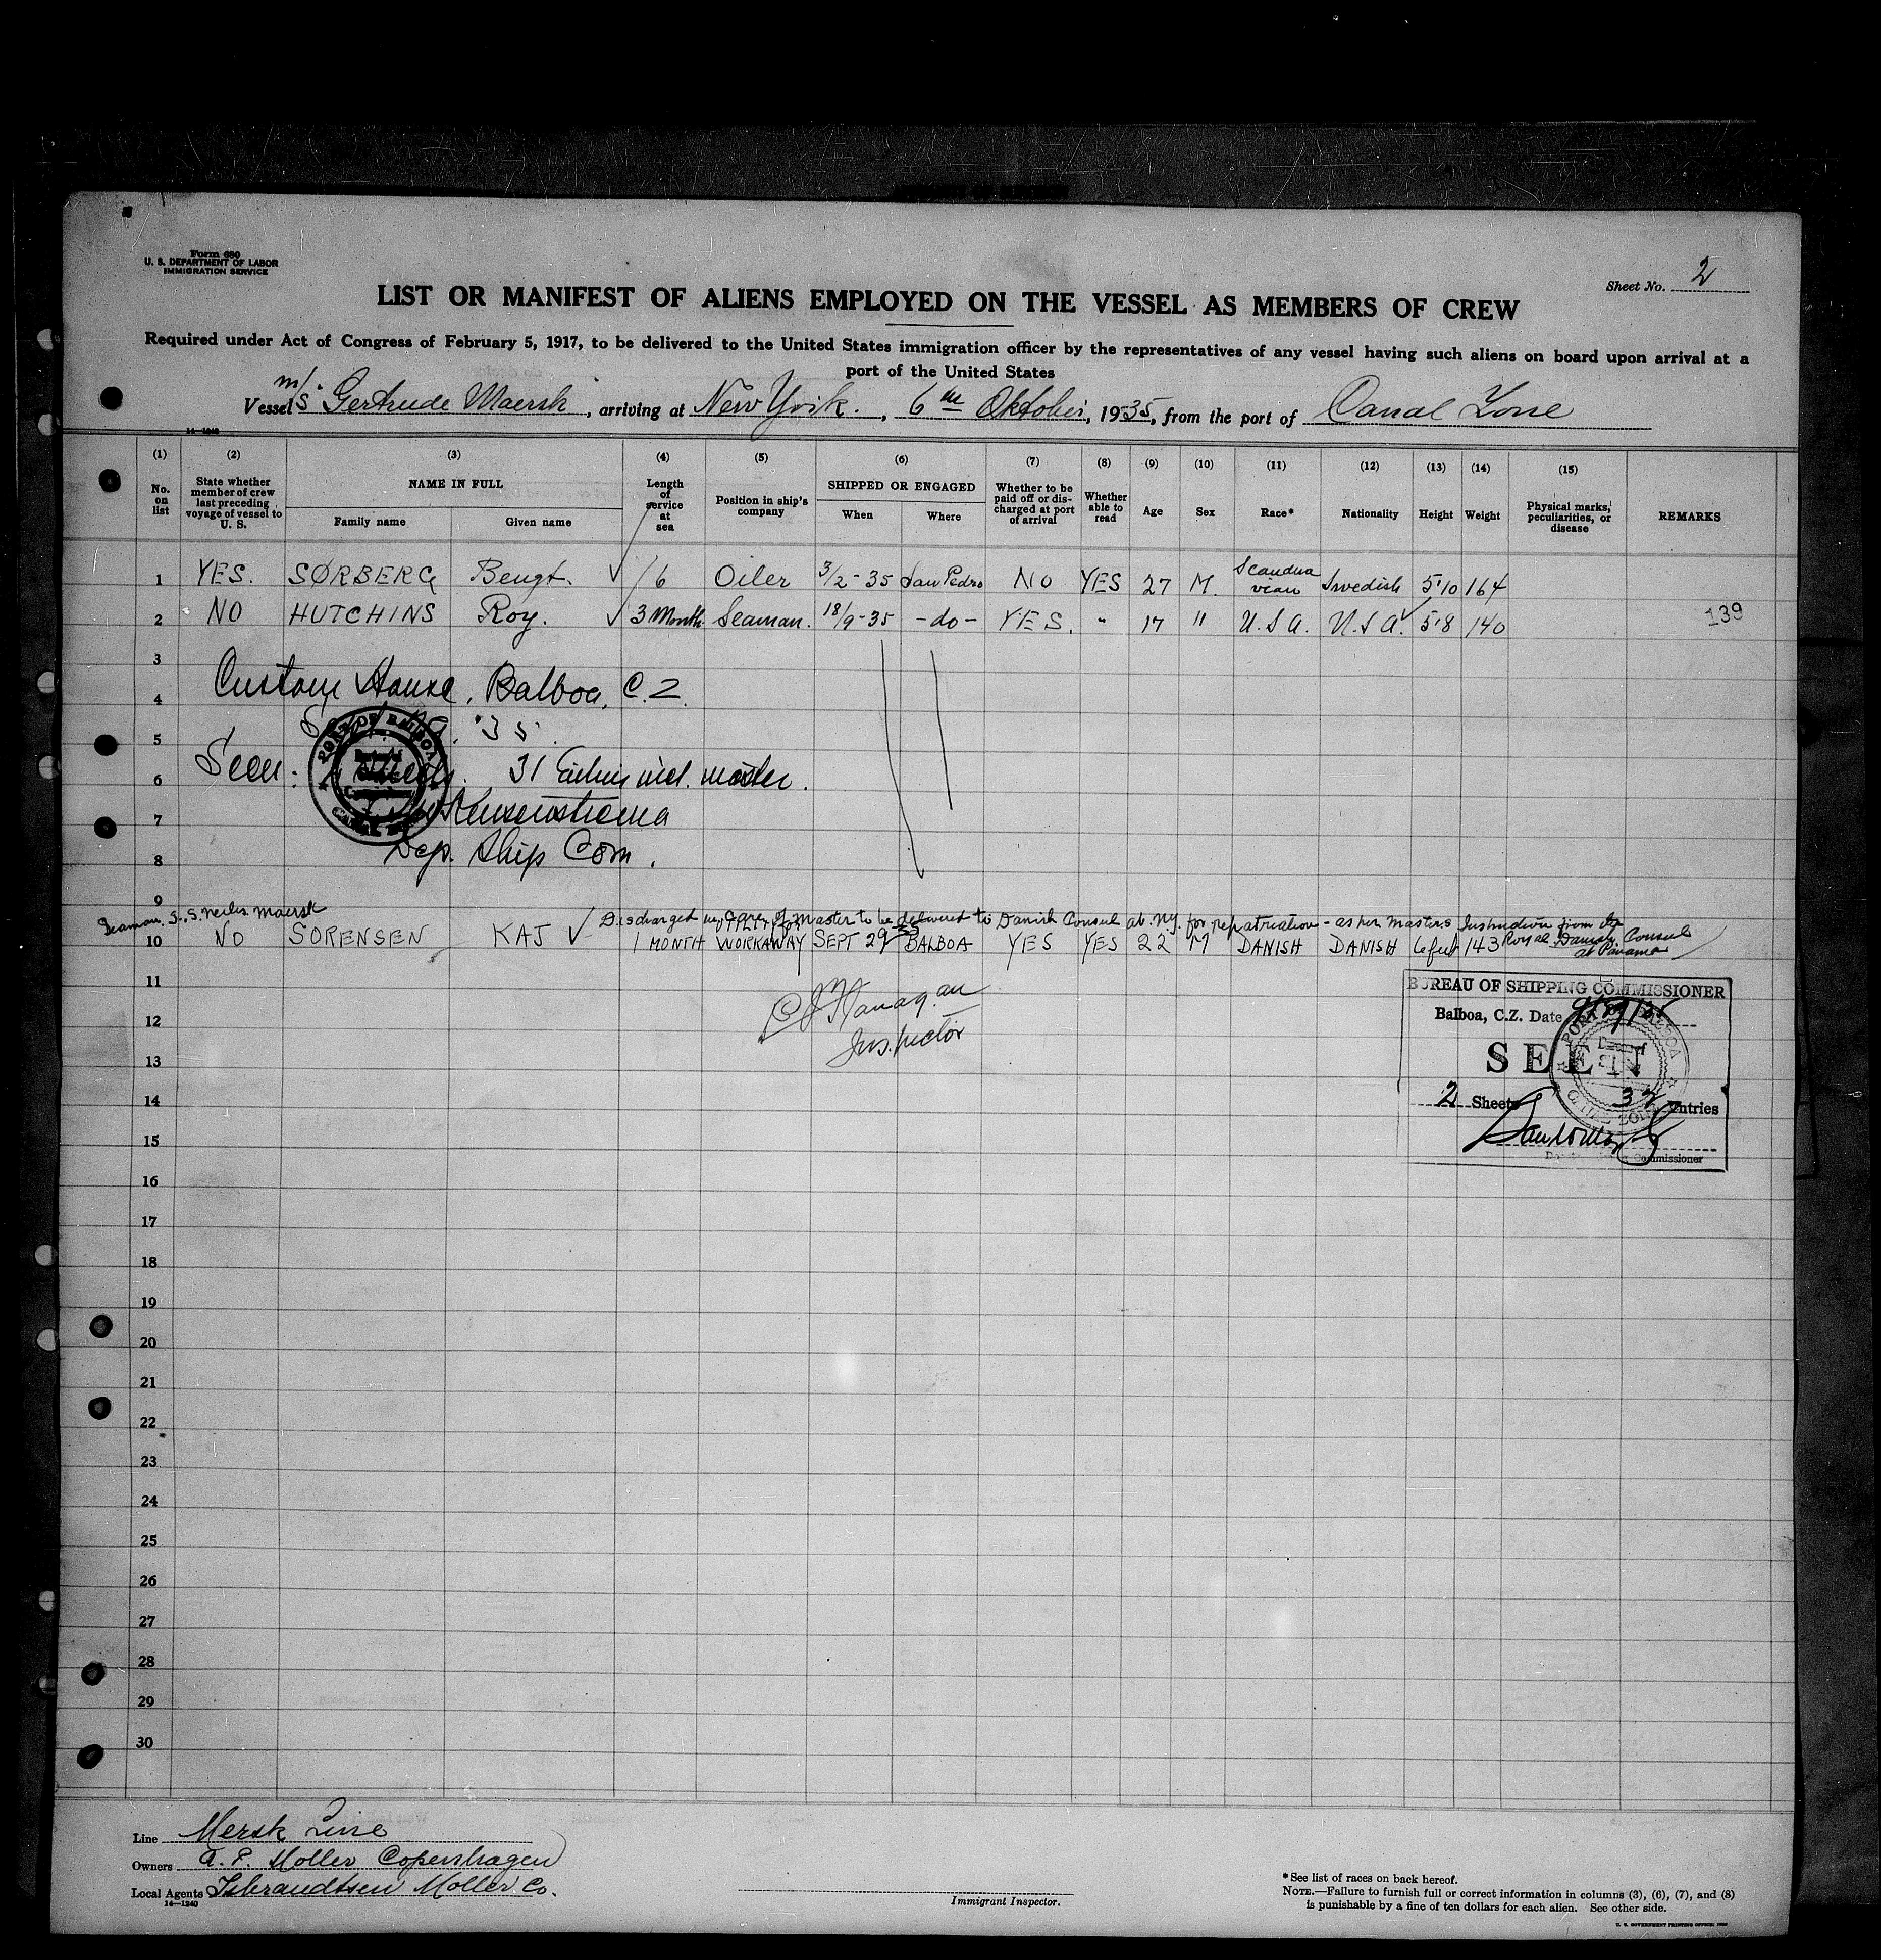 Form 680
U. S. DEPARTMENT OF LABOR
IMMIGRATION SERVICE
Sheet No. 2
LIST OR MANIFEST OF ALIENS EMPLOYED ON THE VESSEL AS MEMBERS OF CREW
Required under Act of Congress of February 5, 1917, to be delivered to the United States immigration officer by the representatives of any vessel having such aliens on board upon arrival at a
port of the United States
Vessel m/s Gertrude Maersk, arriving at New York., 6th Oktober, 1935, from the port of Canal Zone
14-1240
(1) (2) (3) (4) (5) (6) (7) (8) (9) (10) (11) (12) (13) (14) (15)
No. on list State whether member of crew last preceding voyage of vessel to U. S. NAME IN FULL Family name Given name Length of service at sea Position in ship's company SHIPPED OR ENGAGED When Where Whether to be paid off or discharged at port of arrival Whether able to read Age Sex Race* Nationality Height Weight Physical marks, peculiarities, or disease REMARKS
1 YES. SØRBERG Bengt. 6 Oiler 3/2-35 San Pedro NO YES 27 M. Scandinavian Swedish 5'10 164
2 NO HUTCHINS Roy. 3 Month. Seaman. 18/9-35 -do- YES. " 17 " U.S.A. U.S.A. 5'8 140 139
3
Custom House, Balboa, C.Z.
4
5
'35
PORT OF BALBOA
Seen: 31 incl. master.
6
7
8 Dep. Ship Com.
9
Seaman. S.S. Maersk
Discharged in care of Master to be delivered to Danish Consul at N.Y. for repatriation - as per Masters Instruction from the Royal Danish Consul at Panama
10 NO SORENSEN KAJ 1 MONTH WORKAWAY SEPT 29 35 BALBOA YES YES 22 M DANISH DANISH 6 feet 143
11
Flanagan
12
Inspector
BUREAU OF SHIPPING COMMISSIONER
Balboa, C.Z. Date
SEEN
2 Sheets 32 Entries
Commissioner
13
14
15
16
17
18
19
20
21
22
23
24
25
26
27
28
29
30
Line Mersk Line
Owners A. P. Moller Copenhagen
Local Agents Isbrandtsen Moller Co.
14-1240
Immigrant Inspector.
*See list of races on back hereof.
NOTE.—Failure to furnish full or correct information in columns (3), (6), (7), and (8)
is punishable by a fine of ten dollars for each alien. See other side.
U. S. GOVERNMENT PRINTING OFFICE: